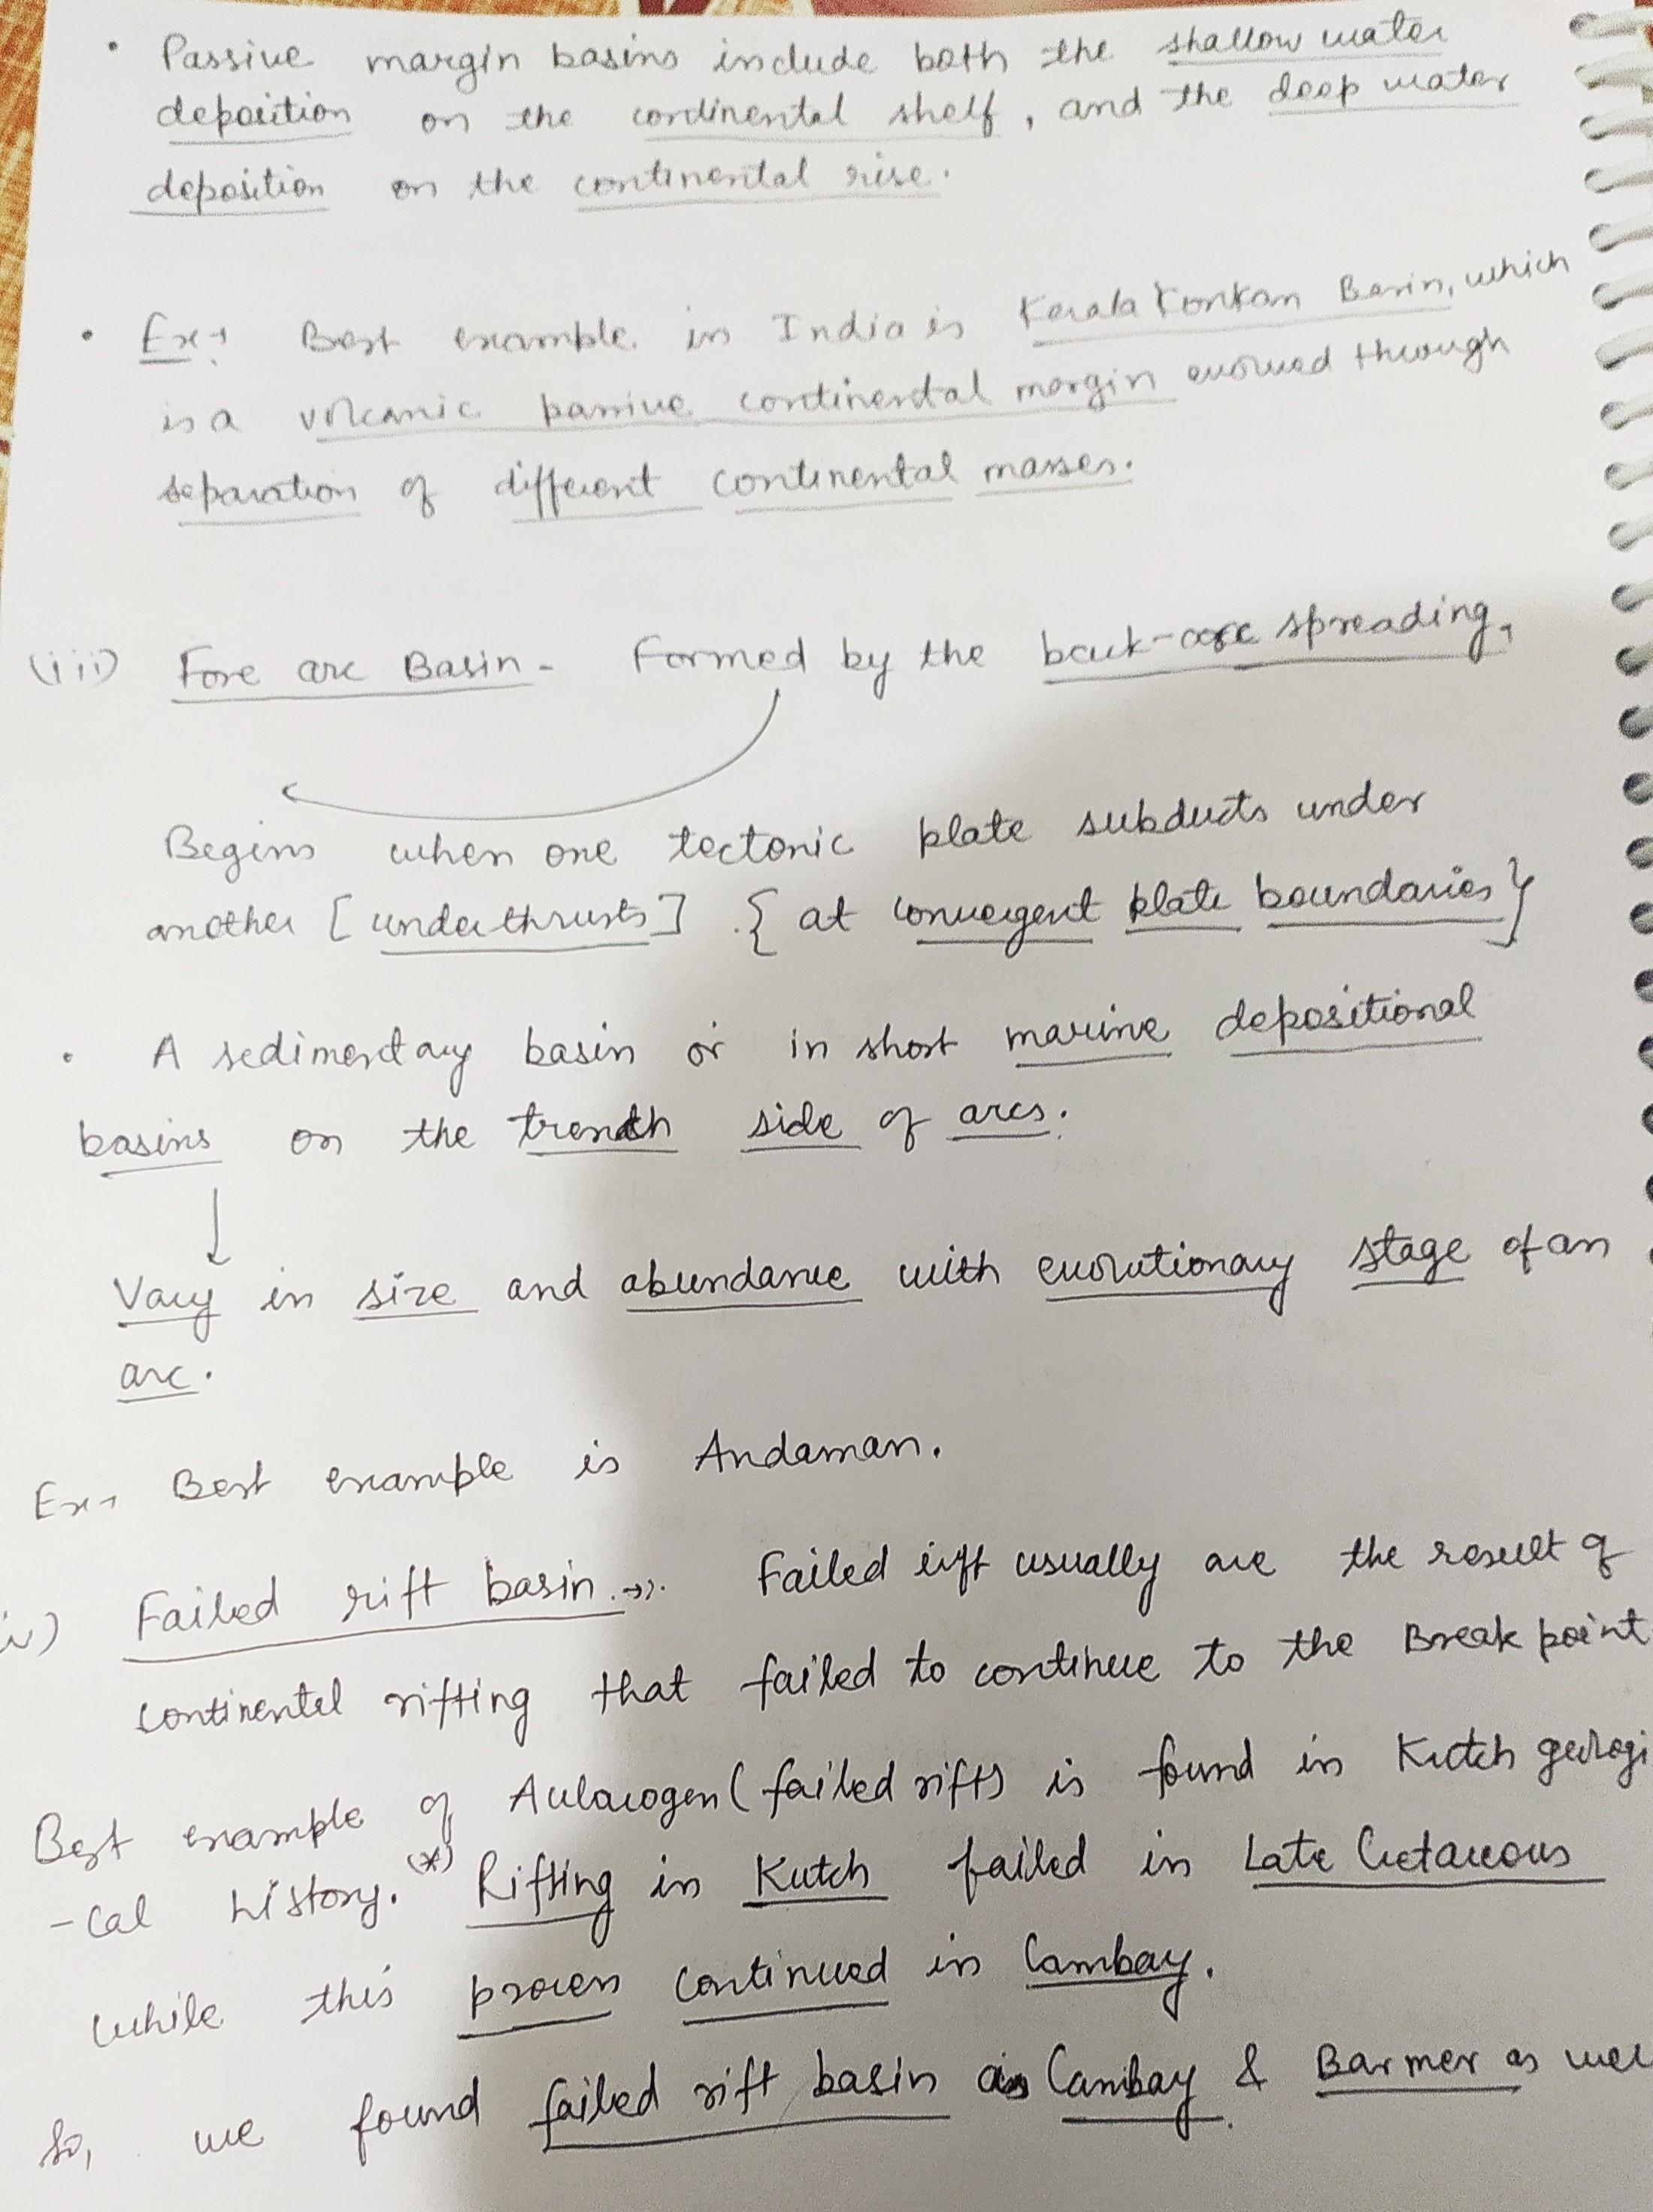 • Passive margin basins include both the shallow water
deposition on the continental shelf, and the deep water
deposition on the continental rise.
• Ex→ Best example in India is Kerala Konkan Basin, which
is a volcanic passive continental margin evolved through
separation of different continental masses.
(iii) Fore arc Basin - Formed by the back-arc spreading,
Begins when one tectonic plate subducts under
another [underthrusts]. {at convergent plate boundaries}
• A sedimentary basin or in short marine depositional
basins on the trench side of arcs.
↓
Vary in size and abundance with evolutionary stage of an
arc.
Ex→ Best example is Andaman.
iv) Failed rift basin →. Failed rift usually are the result of
continental rifting that failed to continue to the Break point
Best example of Aulacogen (failed rift) is found in Kutch geologi
-cal history. (*) Rifting in Kutch failed in Late Cretaceous
while this process continued in Cambay.
So, we found failed rift basin as Cambay & Barmer as well